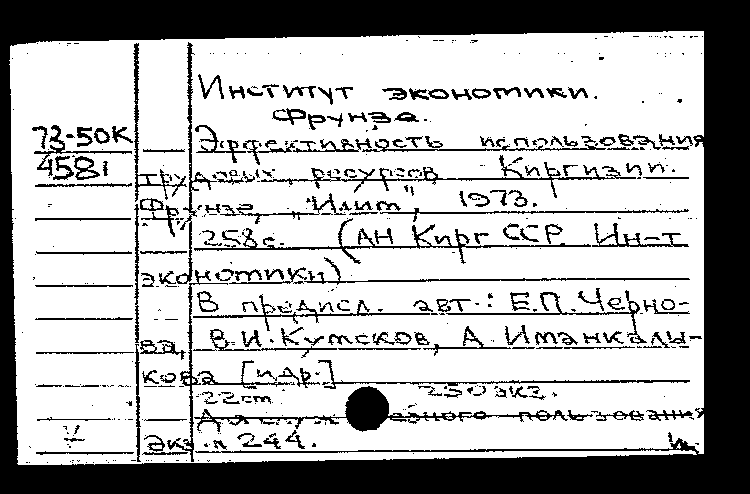 Институт экономики.
Фрунзе.
73-50К
4581
Эффективность использования
трудовых ресурсов Киргизии.
Фрунзе, "Илим", 1973.
258с. (АН Кирг ССР. Ин-т
экономики)
В предисл. авт.: Е.П.Черно-
ва, В.И.Кумсков, А. Иманкалы-
кова [и др.]
22см 250 экз.
Для служебного пользования
Экз. № 244.